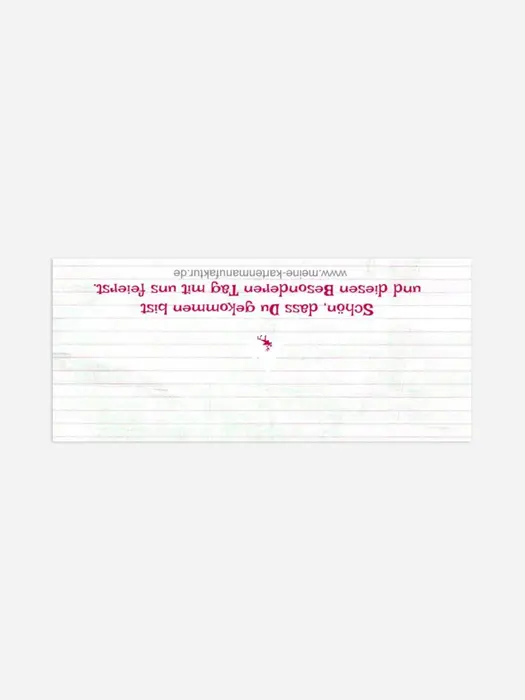 Schön, dass Du gekommen bist
und diesen Besonderen Tag mit uns feierst.
www.meine-kartenmanufaktur.de